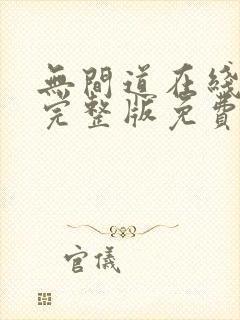 無間道在綫
完整版免費
官儀